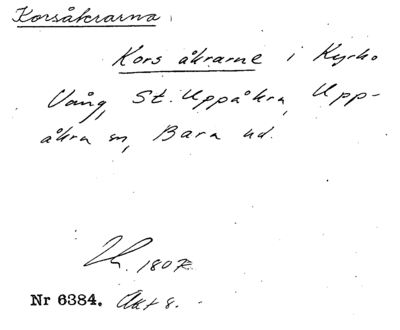 Korsåkrarna
Kors åkrarne i Kyrko
Vång, St. Uppåkra, Upp-
åkra sn, Bara hd.
1807.
Nr 6384. Akt 8.